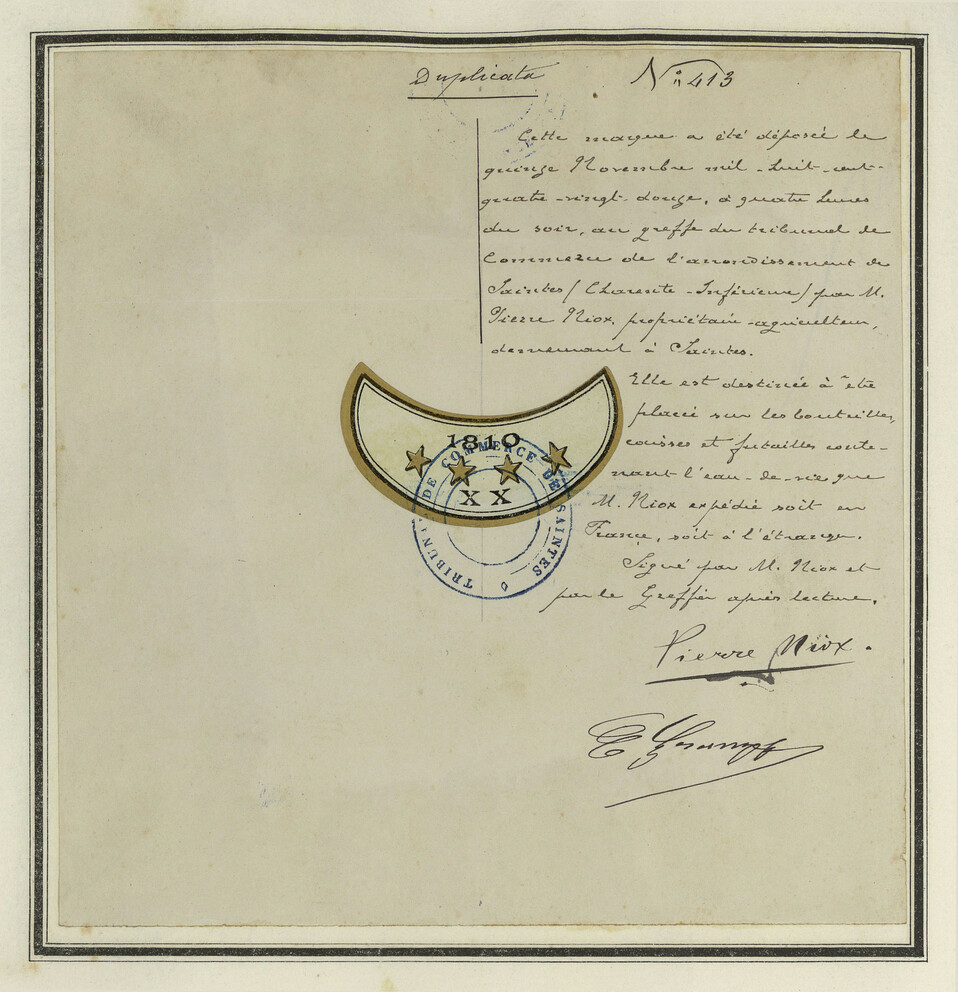 Duplicata
N° 413
Cette marque a été déposée le
quinze Novembre mil-huit-cent-
quatre-vingt-douze, à quatre heures
du soir, au greffe du tribunal de
Commerce de l'arrondissement de
Saintes (Charente-Inférieure) par M.
Pierre Niox, propriétaire-agriculteur,
demeurant à Saintes.
Elle est destinée à être
placée sur les bouteilles,
caisses et futailles conte-
nant l'eau-de-vie que
M. Niox expédie soit en
France, soit à l'étranger.
Signé par M. Niox et
par le Greffier après lecture.
Pierre Niox.
1810
XX
TRIBUNAL DE COMMERCE DE SAINTES